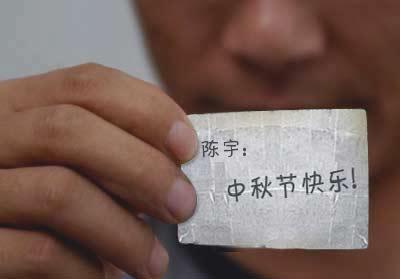 陈宇：
中秋节快乐！